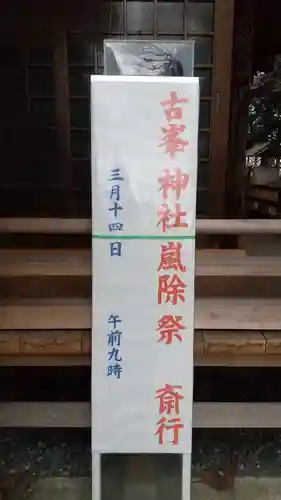 古峯神社嵐除祭 斎行
三月十四日 午前九時